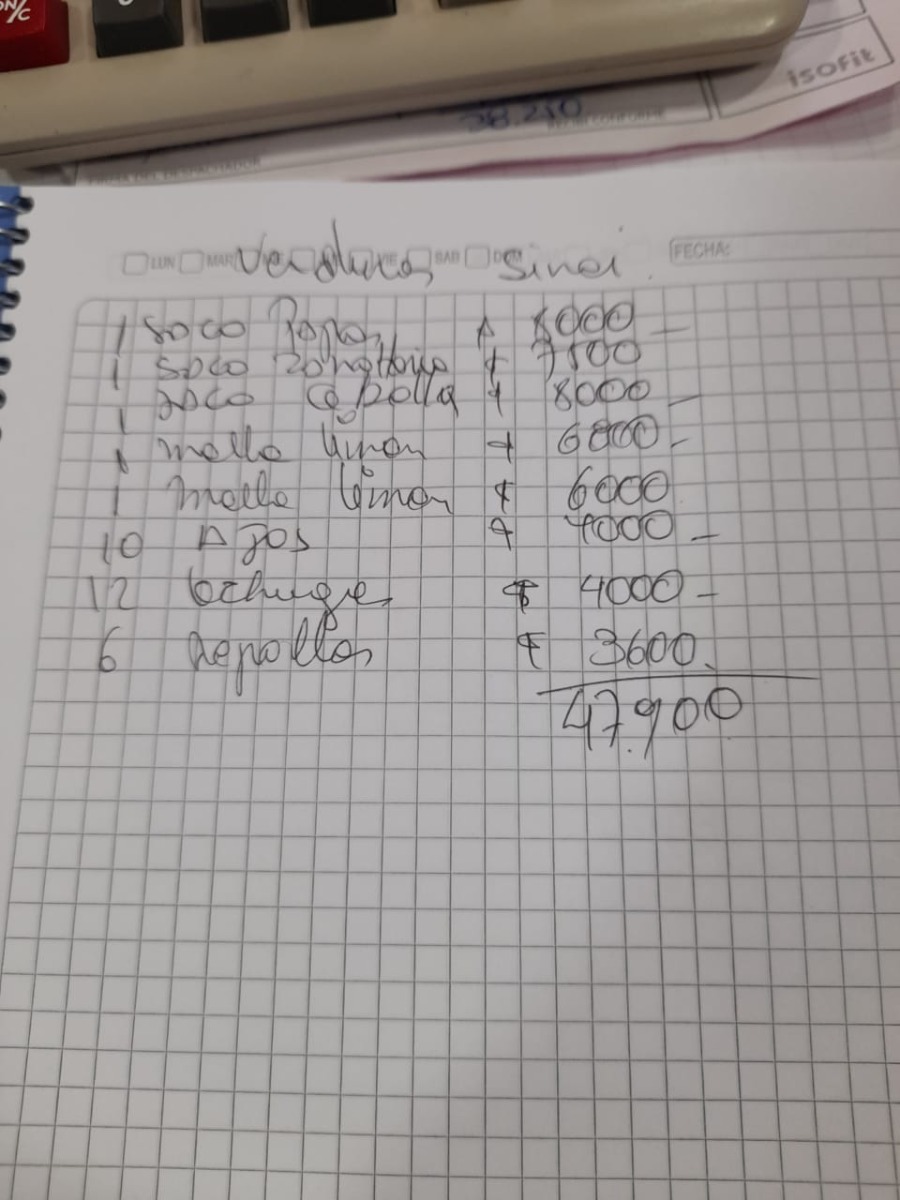 isofit
38.240
LUN MAR SAB FECHA:
Verduras Sinai
1 saco Papas $ 8000 —
1 saco zanahoria $ 7500
1 saco cebolla $ 8000 —
1 malla limon $ 6800 -
1 malla limon $ 6000
10 Ajos $ 4000 —
12 lechugas $ 4000 -
6 Repollos $ 3600.
47.900